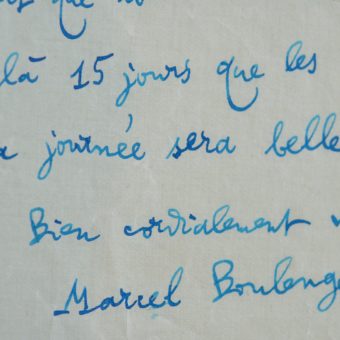 que
là 15 jours que les
journée sera belle
Bien cordialement
Marcel Boulenge